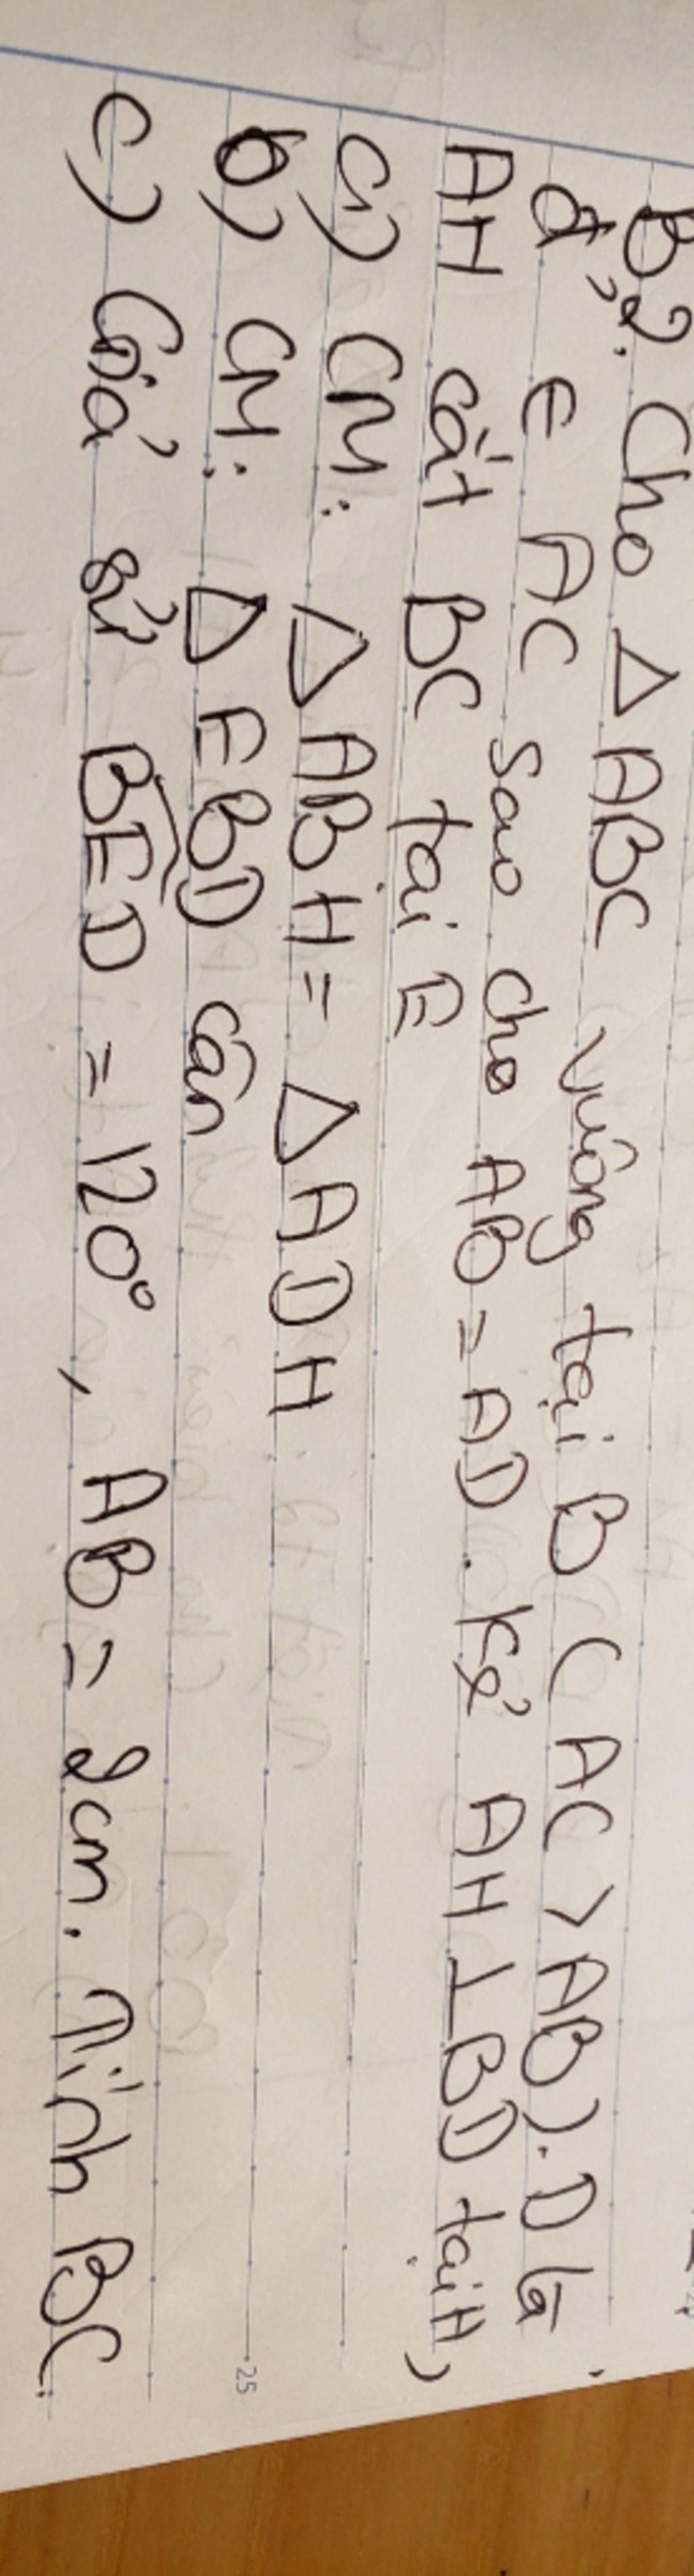 B2. Cho △ ABC vuông tại B ( AC > AB ). D là
đ' ∈ AC sao cho AB = AD. Kẻ AH ⊥ BD tại H,
AH cắt BC tại E
a) CM: △ ABH = △ ADH
b) CM: △ EBD cân
c) Giả sử BED = 120°, AB = 2cm. Tính BC.
25